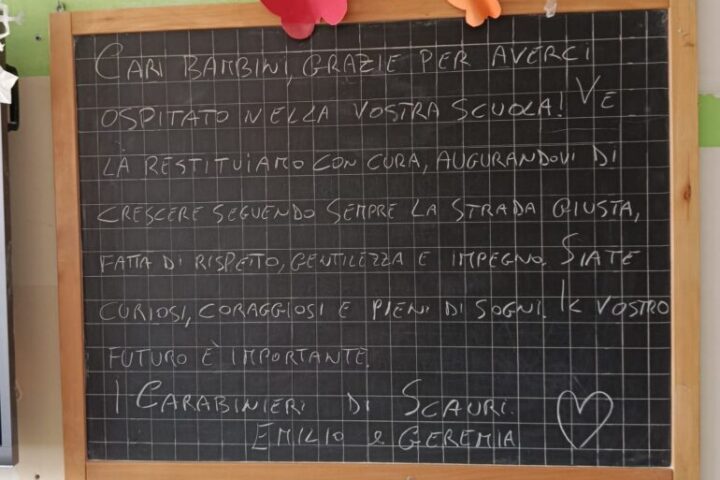 CARI BAMBINI, GRAZIE PER AVERCI
OSPITATO NELLA VOSTRA SCUOLA! VE
LA RESTITUIAMO CON CURA, AUGURANDOVI DI
CRESCERE SEGUENDO SEMPRE LA STRADA GIUSTA,
FATTA DI RISPETTO, GENTILEZZA E IMPEGNO. SIATE
CURIOSI, CORAGGIOSI E PIENI DI SOGNI. IL VOSTRO
FUTURO È IMPORTANTE.
I CARABINIERI DI SCAURI.
EMILIO e GEREMIA